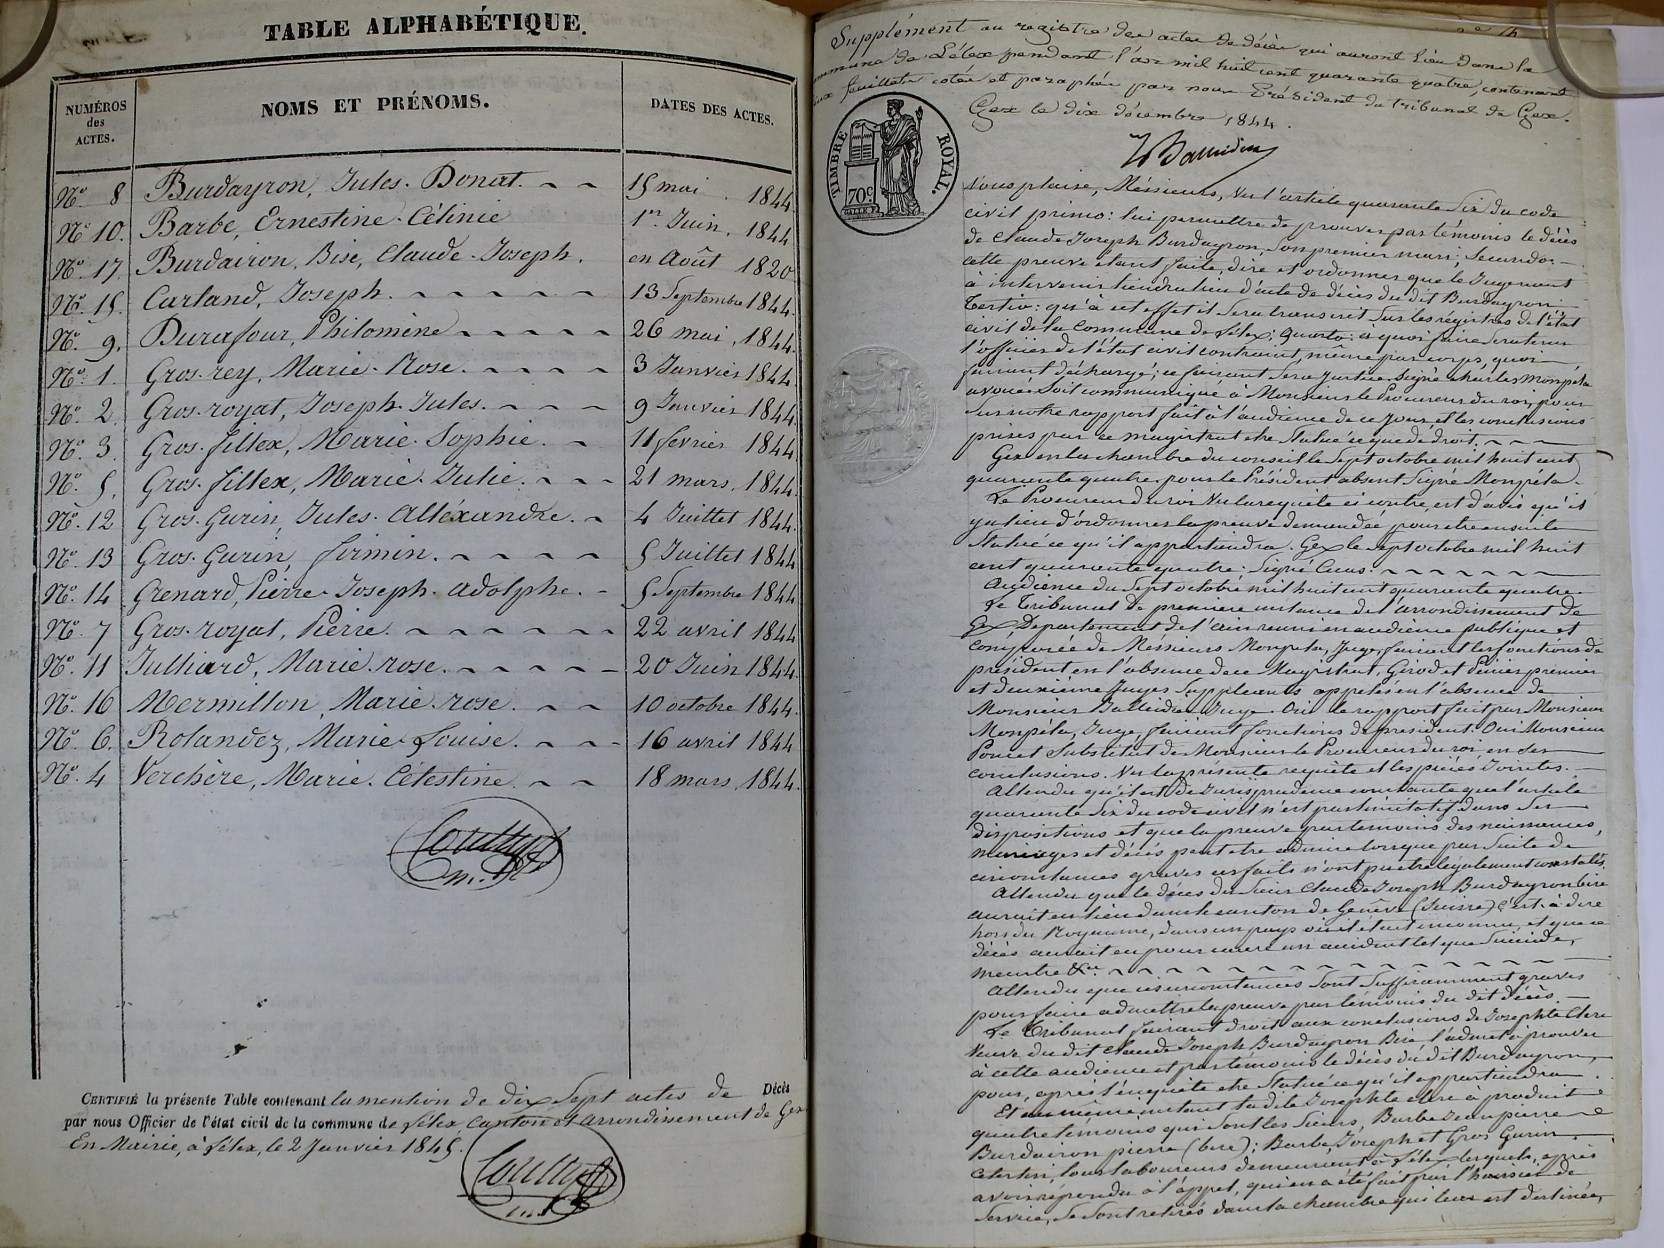 TABLE ALPHABÉTIQUE.
NUMÉROS des ACTES.
NOMS ET PRÉNOMS.
DATES DES ACTES.
No. 8 Burdayron, Jules. Donat. 15 mai 1844
No. 10. Barbe, Ernestine. Célinie 1er Juin. 1844
No. 17 Burdairon, Bise, Claude. Joseph. en Août 1820
No. 15. Carland, Joseph. 13 Septembre 1844.
No. 9. Durafour, Philomène 26 mai, 1844.
No. 1. Gros-rey, Marie. Rose. 3 Janvier 1844.
No. 2. Gros-royat, Joseph. Jules. 9 Janvier 1844.
No. 3. Gros-fillex, Marie. Sophie. 11 fevrier 1844.
No. 5. Gros-fillex, Marie. Julie. 21 mars. 1844.
No. 12 Gros-Gurin, Jules. alléxandre. 4 Juillet 1844.
No. 13 Gros-Gurin, firmin. 5 Juillet 1844.
No. 14 Grenard, Pierre. Joseph. adolphe. 5 Septembre 1844
No. 7 Gros-royat, Pierre. 22 avril 1844
No. 11 Julliard, Marie-rose. 20 Juin 1844.
No. 16 Mermillon, Marie-rose. 10 octobre 1844.
No. 6. Rolandez, Marie-Louise. 16 avril 1844
No. 4 Verchère, Marie. Célestine. 18 mars, 1844.
CERTIFIÉ la présente Table contenant la mention de dix Sept actes de Décès
par nous Officier de l'état civil de la commune de Lélex, canton et arrondissement de Gex
En Mairie, à Lélex, le 2 Janvier 1845.
Supplément au registre des actes de décès qui auront lieu dans la
commune de Lélex pendant l'an mil huit cent quarante quatre, contenant
feuillets cotés et paraphés par nous Président du tribunal de Gex.
Gex le dix décembre 1844.
TIMBRE ROYAL.
70 C.
Vous plaise, Messieurs, Vu l'article quarante Six du code
civil primo: lui permettre de prouver par témoins le décès
de Claude Joseph Burdayron, Son premier mari; Secundo:
cette preuve étant faite, dire et ordonner que le Jugement
à intervenir tiendra lieu d'acte de décès du dit Burdayron;
Tertio: qu'à cet effet il Sera transcrit Sur les régistres de l'état
civil de la commune de Lélex; Quarto: à quoi faire Sera tenu
l'officier de l'état civil contraint, même par corps, quoi
faisant déchargé; ce faisant Sera Justice. Signé Charles Monpéla
avoué. Soit communiqué à Monsieur le Procureur du roi, pour
Sur notre rapport fait à l'audience de ce Jour et les conclusions
prises par ce magistrat être Statué ce que de droit.
Gex en la chambre du conseil le Sept octobre mil huit cent
quarante quatre, pour le Président absent Signé Monpéla.
Le Procureur du roi Vu la requête ci contre, est d'avis qu'il
y a lieu d'ordonner la preuve demandée pour être ensuite
Statué ce qu'il appartiendra. Gex le Sept octobre mil huit
cent quarante quatre: Signé
Audience du Sept octobre mil huit cent quarante quatre.
Le Tribunal de première instance de l'arrondissement de
Gex, Département de l'ain réuni en audience publique et
Composée de Messieurs Monpela, Juge, faisant les fonctions de
président en l'absence de ce Magistrat, Girod et Périer premier
et deuxième Juges Suppléants appelés en l'absence de
Monsieur Juge. Oui le rapport fait par Monsieur
Monpéla, Juge, faisant fonctions de président. Oui Monsieur
Poncet Substitut de Monsieur le Procureur du roi en Ses
conclusions. Vu la présente requête et les pièces Jointes.
Attendu qu'il est de Jurisprudence constante que l'article
quarante Six du code civil n'est pas limitatif dans Ses
dispositions et que la preuve par témoins des naissances,
mariages et décès peut etre admise lorsque par Suite de
circonstances graves ces faits n'ont pu etre légalement constatés
Attendu que le décès du Sieur Claude Joseph Burdayron bise
aurait eu lieu dans le canton de Genêve (Suisse) c'est à dire
hors du Royaume, dans un pays où il était inconnu, et que ce
décès aurait eu pour cause un accident tel que Suicide,
meurtre &a.
Attendu que ces circonstances Sont Suffisamment graves
pour faire admettre la preuve par témoins du dit décès.
Le Tribunal faisant droit aux conclusions de Josephte Clerc
Veuve du dit Claude Joseph Burdayron Bise l'admet à prouver
à cette audience et par témoins le décès du dit Burdayron,
pour, après l'enquête etre Statué ce qu'il appartiendra.
Et au même instant la dite Josephte Clerc a produit
quatre témoins qui Sont les Sieurs, Barbe Jean pierre
Burdairon pierre (bise); Barbe Joseph et Gros Gurin
Célestin, tous laboureurs demeurant à Lélex lesquels, après
avoir répondu à l'appel, qui en a été fait par l'huissier de
Service, Se Sont retirés dans la chambre qui leur est destinée,